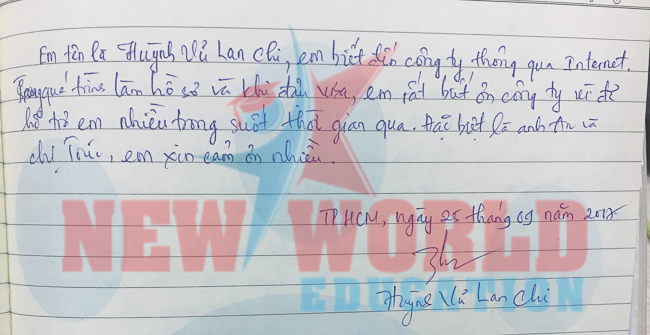 Em tên là Huỳnh Vũ Lan Chi, em biết đến công ty thông qua Internet.
Trong quá trình làm hồ sơ và khi đậu visa, em rất biết ơn công ty vì đã
hỗ trợ em nhiều trong suốt thời gian qua. Đặc biệt là anh An và
chị Trúc, em xin cảm ơn nhiều.
TPHCM, ngày 25 tháng 09 năm 2017
Huỳnh Vũ Lan Chi
NEW WORLD
EDUCATION